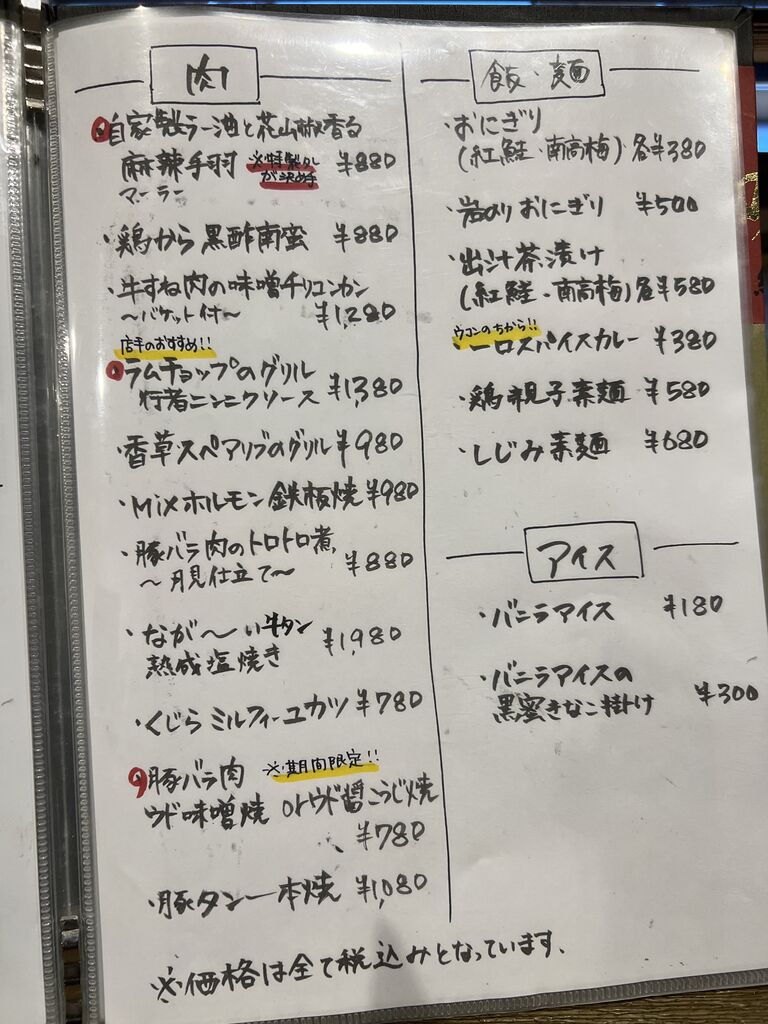 肉
自家製ラー油と花山椒香る
麻辣手羽 ※特製ダレが決め手 ¥880
マーラー
・鶏から黒酢南蛮 ¥880
・牛すね肉の味噌チリコンカン
〜バケット付〜 ¥1,280
店手のおすすめ!!
ラムチョップのグリル
行者ニンニクソース ¥1,380
・香草スペアリブのグリル ¥980
・Mixホルモン鉄板焼 ¥980
・豚バラ肉のトロトロ煮
〜月見仕立て〜 ¥880
・なが〜い牛タン
熟成塩焼き ¥1,980
・くじらミルフィーユカツ ¥780
豚バラ肉 ※期間限定!!
ウド味噌焼 orウド醤こうじ焼
¥780
・豚タン一本焼 ¥1,080
※価格は全て税込みとなっています.
飯・麺
・おにぎり
(紅鮭・南高梅) 各¥380
・岩のりおにぎり ¥500
・出汁茶漬け
(紅鮭・南高梅) 各¥580
ウコンのちから!!
・一口スパイスカレー ¥380
・鶏親子素麺 ¥580
・しじみ素麺 ¥680
アイス
・バニラアイス ¥180
・バニラアイスの
黒蜜きなこ掛け ¥300